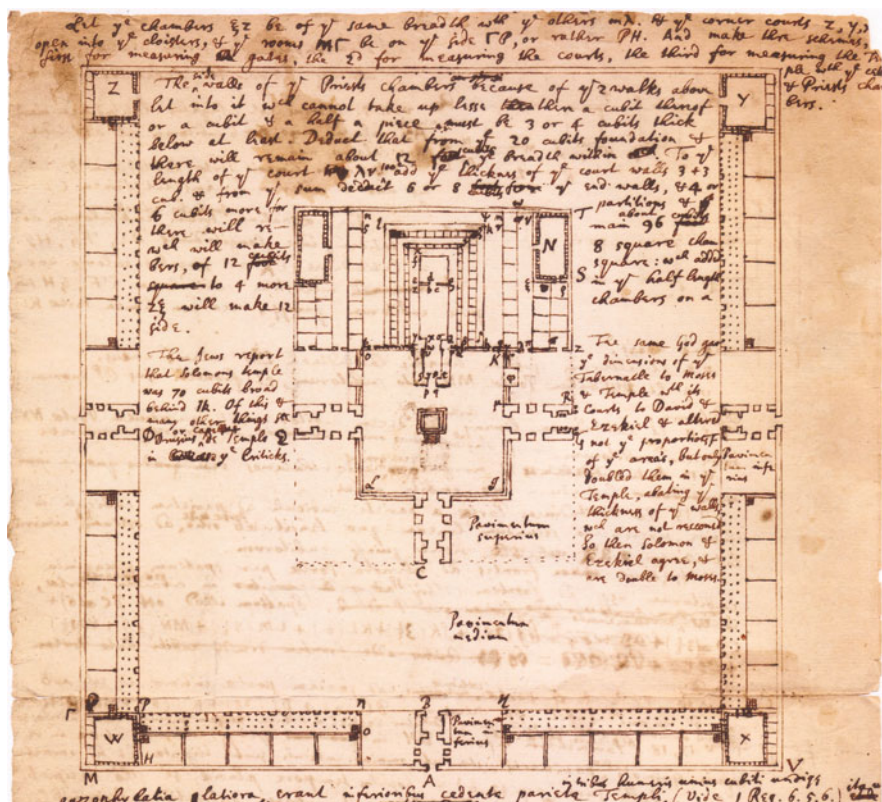 Let yᵉ chambers ξz be of yᵉ same breadth wᵗʰ yᵉ others mλ. & yᵉ corner courts Z, Y,
open into yᵉ cloisters, & yᵉ rooms be on yᵉ side ΓP, or rather PH. And make three schemes,
first for measuring gates, the 2d for measuring the courts, the third for measuring the Tem
ple wᵗʰ yᵉ
& Priests cham
bers.
Z
Y
The side walls of yᵉ Priests chambers because of yᵉ 2 walks above
let into it wᶜʰ cannot take up lesse then a cubit thereof
or a cubit & a half a piece must be 3 or 4 cubits thick
below at least. Deduct that from yᵉ 20 cubits foundation &
there will remain about 12 cubits yᵉ breadth within. To yᵉ
length of yᵉ court add yᵉ thickness of yᵉ court walls 3+3
cub. & from yᵉ sum deduct 6 or 8 yᵉ end-walls, & 4 or
6 cubits more for
partitions &
there will re-
main about 96 cubits
wᶜʰ will make
8 square cham
bers, of 12 cubits
square: wᶜʰ added
to 4 more
in yᵉ half length
will make 12
chambers on a
side.
T
N
S
The Jews report
that Solomons temple
was 70 cubits broad
behind. Of this &
many other things see
Drusius de Temple
in yᵉ Criticks.
The same God gave
yᵉ dimensions of yᵉ
Tabernacle to Moses
& Temple wᵗʰ its
Courts to David &
Ezekiel & altered
not yᵉ proportion
of yᵉ areas, but only
doubled them in yᵉ
Temple, abating yᵉ
thickness of yᵉ walls
wᶜʰ are not reccone
So then Solomon &
Ezekiel agree, &
are double to Moses.
K
R
Pavimen
tum infe
rius
L
Pavimentum
superius
C
Pavimentum
medium
Γ
P
B
H
Pavimen
tum in
ferius
W
X
H
M
A
V
humeris unius cubiti undique
gazophylatia latiora, erant inferioribus cedente pariete Templi. (Vide 1 Reg. 6.5,6.)